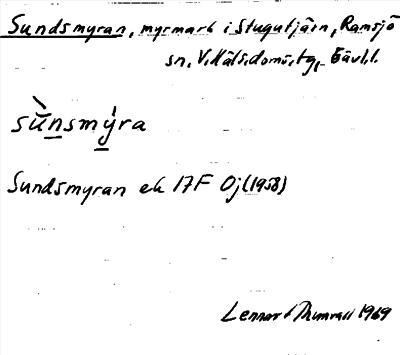 Sundsmyran, myrmark i Stugutjärn, Ramsjö
sn, V. Häls. doms. tg, Gävl. l.
sùnsmýra
Sundsmyran ek 17F Oj (1958)
Lennart Thunvall 1969